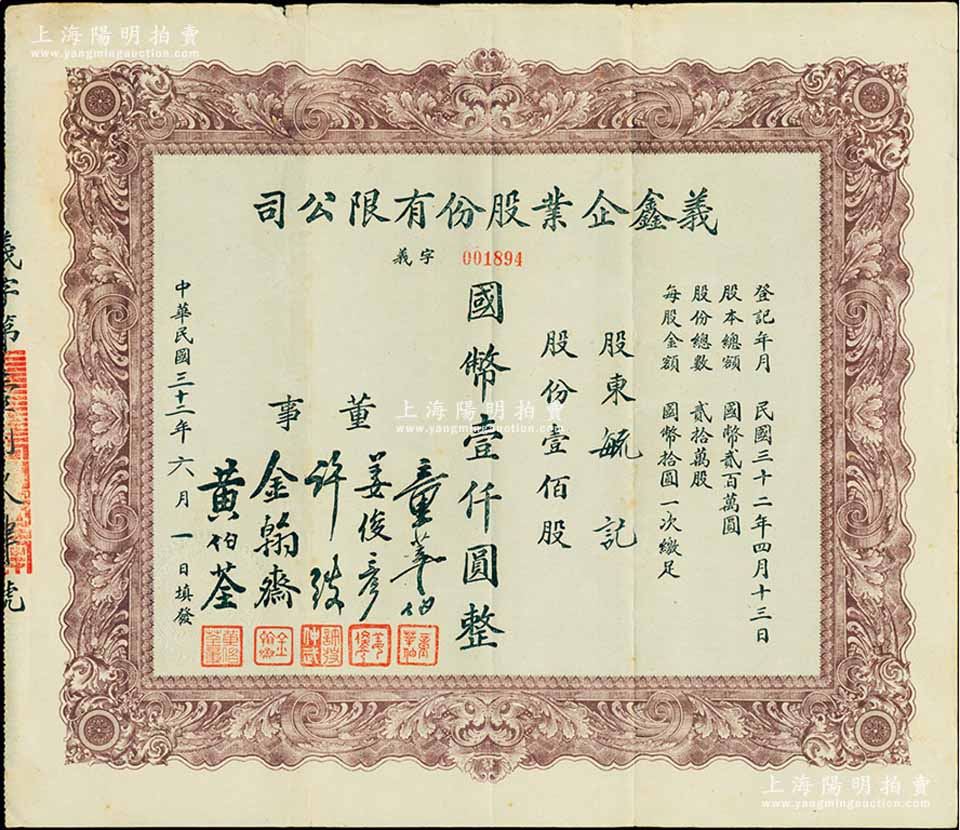 上海陽明拍賣
www.yangmingauction.com
義鑫企業股份有限公司
義字 001894
登記年月 民國三十二年四月十三日
股本總額 國幣貳百萬圓
股份總數 貳拾萬股
每股金額 國幣拾圓一次繳足
股東毓記
股份壹佰股
國幣壹仟圓整
董事
童莘伯
姜俊彥
許
金翰齋
黃伯荃
中華民國三十二年六月一日填發
義字第
號
上海陽明拍賣
www.yangmingauction.com
上海陽明拍賣
www.yangmingauction.com